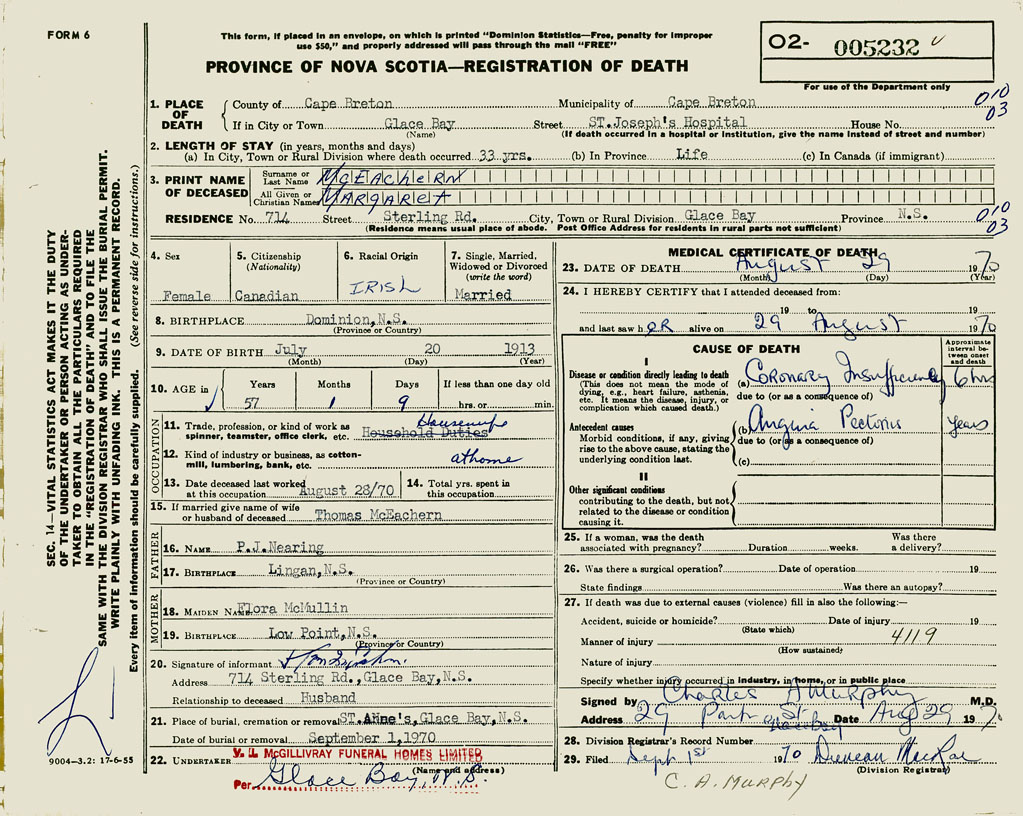 FORM 6
This form, if placed in an envelope, on which is printed "Dominion Statistics—Free, penalty for improper
use $50," and properly addressed will pass through the mail "FREE"
PROVINCE OF NOVA SCOTIA—REGISTRATION OF DEATH
O2- 005232
For use of the Department only
1. PLACE OF DEATH
County of Cape Breton Municipality of Cape Breton
010
03
If in City or Town Glace Bay Street ST.Joseph's Hospital House No.
(Name) (If death occurred in a hospital or institution, give the name instead of street and number)
2. LENGTH OF STAY (in years, months and days)
(a) In City, Town or Rural Division where death occurred 33 yrs. (b) In Province Life (c) In Canada (if immigrant)
3. PRINT NAME OF DECEASED
Surname or Last Name McEAcheRN
All Given or Christian Names MARGAReT
RESIDENCE No. 714 Street Sterling Rd. City, Town or Rural Division Glace Bay Province N.S.
010
03
(Residence means usual place of abode. Post Office Address for residents in rural parts not sufficient)
4. Sex
Female
5. Citizenship
(Nationality)
Canadian
6. Racial Origin
IRISH
7. Single, Married,
Widowed or Divorced
(write the word)
Married
8. BIRTHPLACE Dominion,N.S.
(Province or Country)
9. DATE OF BIRTH July 20 1913
(Month) (Day) (Year)
10. AGE in
Years Months Days If less than one day old
57 1 9 hrs. or min.
OCCUPATION
11. Trade, profession, or kind of work as
spinner, teamster, office clerk, etc. Household Duties Housewife
12. Kind of industry or business, as cotton-
mill, lumbering, bank, etc. at home
13. Date deceased last worked
at this occupation August 28/70
14. Total yrs. spent in
this occupation
15. If married give name of wife
or husband of deceased Thomas McEachern
FATHER
16. NAME P.J.Nearing
17. BIRTHPLACE Lingan,N.S.
(Province or Country)
MOTHER
18. MAIDEN NAME Flora McMullin
19. BIRTHPLACE Low Point,N.S.
(Province or Country)
20. Signature of informant
Address 714 Sterling Rd.,Glace Bay,N.S.
Relationship to deceased Husband
21. Place of burial, cremation or removal ST.Anne's,Glace Bay,N.S.
Date of burial or removal September 1,1970
22. UNDERTAKER V. J. McGILLIVRAY FUNERAL HOMES LIMITED
(Name and address)
Per Glace Bay, N.S.
MEDICAL CERTIFICATE OF DEATH
23. DATE OF DEATH August 29 1970
(Month) (Day) (Year)
24. I HEREBY CERTIFY that I attended deceased from:
19 to 19
and last saw hER alive on 29 August 1970
CAUSE OF DEATH
Approximate
interval be-
tween onset
and death
I
Disease or condition directly leading to death
(This does not mean the mode of
dying, e.g., heart failure, asthenia,
etc. It means the disease, injury, or
complication which caused death.)
(a) Coronary Insufficiency 6 hrs
due to (or as a consequence of)
Antecedent causes
Morbid conditions, if any, giving
rise to the above cause, stating the
underlying condition last.
(b) Angina Pectoris years
due to (or as a consequence of)
(c)
II
Other significant conditions
contributing to the death, but not
related to the disease or condition
causing it.
25. If a woman, was the death
associated with pregnancy? Duration weeks. Was there
a delivery?
26. Was there a surgical operation? Date of operation 19
State findings Was there an autopsy?
27. If death was due to external causes (violence) fill in also the following:—
Accident, suicide or homicide? Date of injury 19
(State which)
Manner of injury 4119
(How sustained)
Nature of injury
Specify whether injury occurred in industry, in home, or in public place
Signed by Charles A Murphy M.D.
Address 29 Park St Glace Bay Date Aug 29 1970
28. Division Registrar's Record Number
29. Filed Sept 1st 1970 Duncan MacRae
(Division Registrar)
C. A. MURPHY
SEC. 14—VITAL STATISTICS ACT MAKES IT THE DUTY
OF THE UNDERTAKER OR PERSON ACTING AS UNDER-
TAKER TO OBTAIN ALL THE PARTICULARS REQUIRED
IN THE "REGISTRATION OF DEATH" AND TO FILE THE
SAME WITH THE DIVISION REGISTRAR WHO SHALL ISSUE THE BURIAL PERMIT.
WRITE PLAINLY WITH UNFADING INK. THIS IS A PERMANENT RECORD.
Every item of information should be carefully supplied. (See reverse side for instructions.)
9004—3.2: 17-6-55